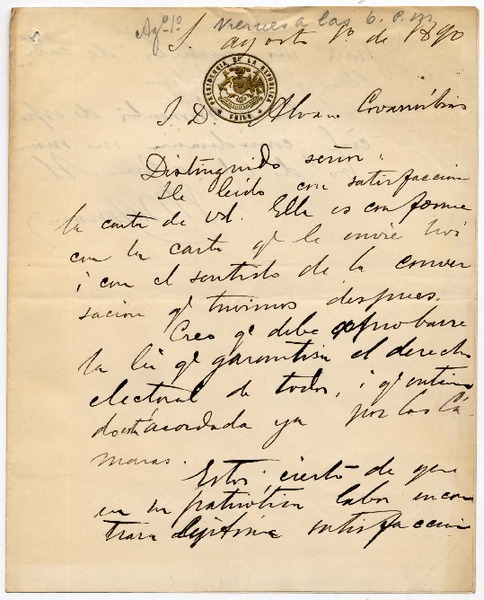 Agto 1º Viernes a las 6. P.M
S. agosto 1º de 1890
PRESIDENCIA DE LA REPUBLICA
CHILE
S. D. Alvaro Covarrúbias
Distinguido señor:
He leido con satisfaccion
la carta de Ud. Ella es conforme
con la carta qe le envié
i con el sentido de la conver
sacion qe tuvimos despues.
Creo qe debe aprobarse
la lei qe garantiza el derecho
electoral de todos, i qe
acordada ya por las Cá-
maras.
Estoi cierto de que
en su patriotica labor encon
trara lejitima satisfaccion